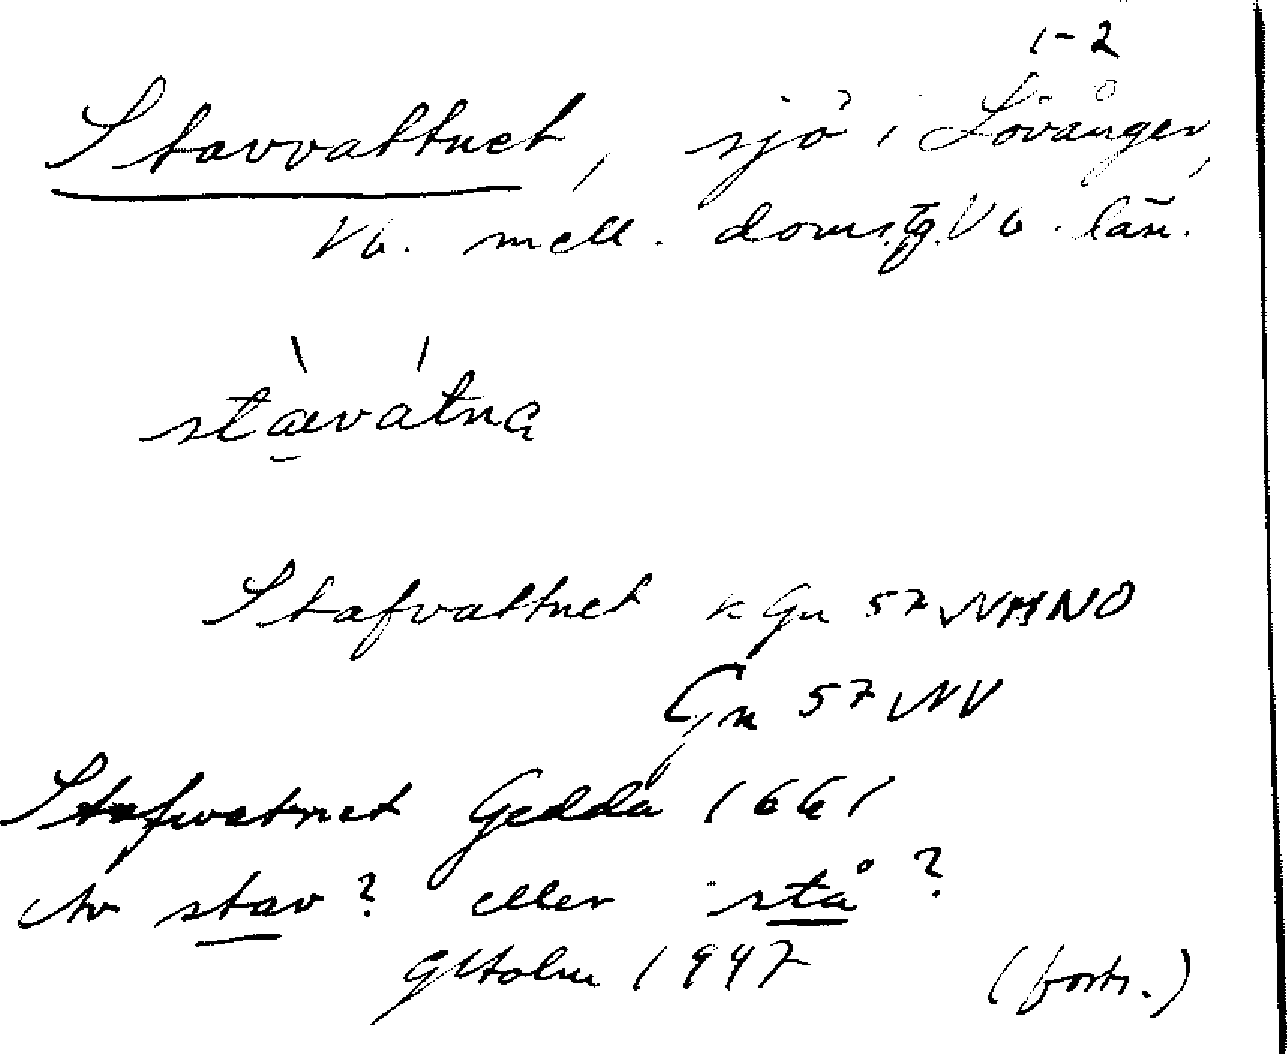 1-2
Stavvattnet, sjö i Lövånger,
Vb. mell. doms.g. Vb. län.
stævatna
Stafvattnet k Gn 57 NHNO
Gn 57 NV
Stafwatnet Gedda 1661
Av stav? eller stå?
GHolm 1947 (forts.)